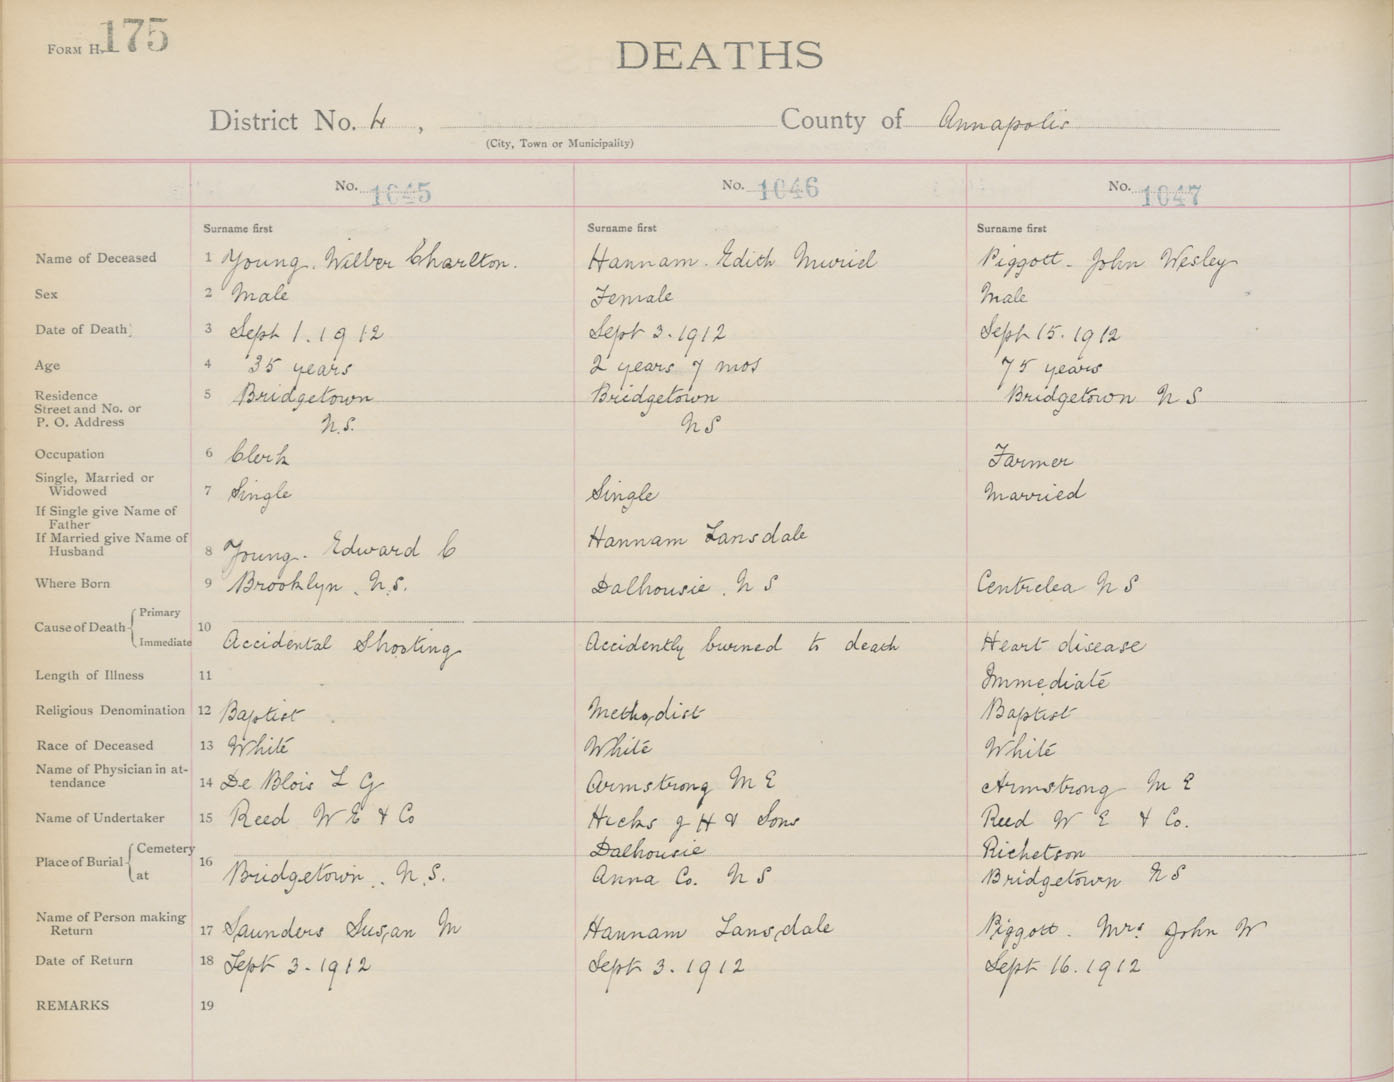 FORM H. 175
DEATHS
District No. 4 , County of Annapolis
(City, Town or Municipality)
No. 1045 No. 1046 No. 1047
Surname first Surname first Surname first
Name of Deceased 1 Young. Wilber Charlton. Hannam. Edith Muriel Piggott. John Wesley
Sex 2 Male Female Male
Date of Death 3 Sept 1. 1912 Sept 3. 1912 Sept 15. 1912
Age 4 35 years 2 years 7 mos 75 years
Residence
Street and No. or 5 Bridgetown Bridgetown Bridgetown N S
P. O. Address N.S. N S
Occupation 6 Clerk Farmer
Single, Married or
Widowed 7 Single Single Married
If Single give Name of
Father
If Married give Name of Hannam Lansdale
Husband 8 Young. Edward C
Where Born 9 Brooklyn. N.S. Dalhousie. N S Centrelea N S
Cause of Death { Primary
10
Immediate Accidental Shooting Accidently burned to death Heart disease
Length of Illness 11 Immediate
Religious Denomination 12 Baptist Methodist Baptist
Race of Deceased 13 White White White
Name of Physician in at-
tendance 14 De Blois L G Armstrong M E Armstrong M E
Name of Undertaker 15 Reed W E & Co Hicks J H & Sons Reed W E & Co.
Place of Burial { Cemetery Dalhousie Richetson
16
at Bridgetown. N.S. Anna Co. N S Bridgetown N S
Name of Person making
Return 17 Saunders Susan M Hannam Lansdale Piggott. Mrs John W
Date of Return 18 Sept 3. 1912 Sept 3. 1912 Sept 16. 1912
REMARKS 19